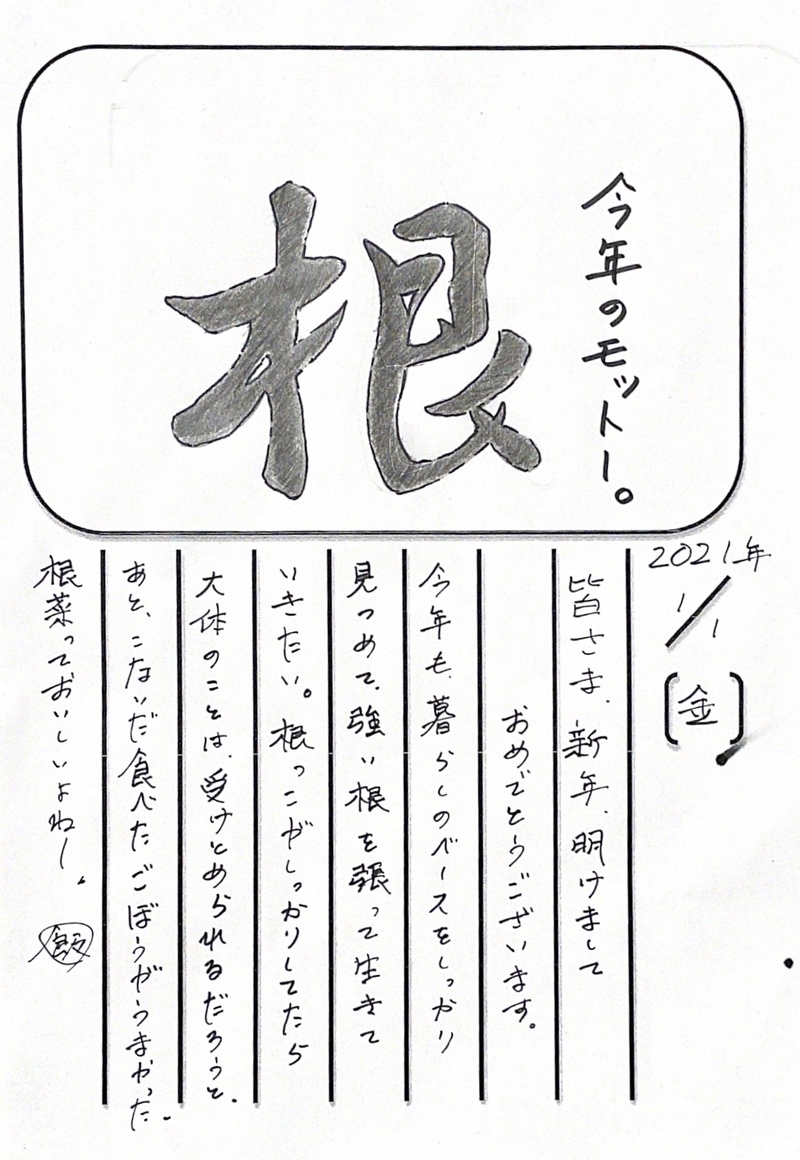 今年のモットー。
根
2021年
1/1
(金)
皆さま、新年、明けまして
おめでとうございます。
今年も、暮らしのベースをしっかり
見つめて、強い根を張って生きて
いきたい。根っこがしっかりしてたら
大体のことは、受けとめられるだろうと。
あと、こないだ食べたごぼうがうまかった。
根菜っておいしいよねー。
飯